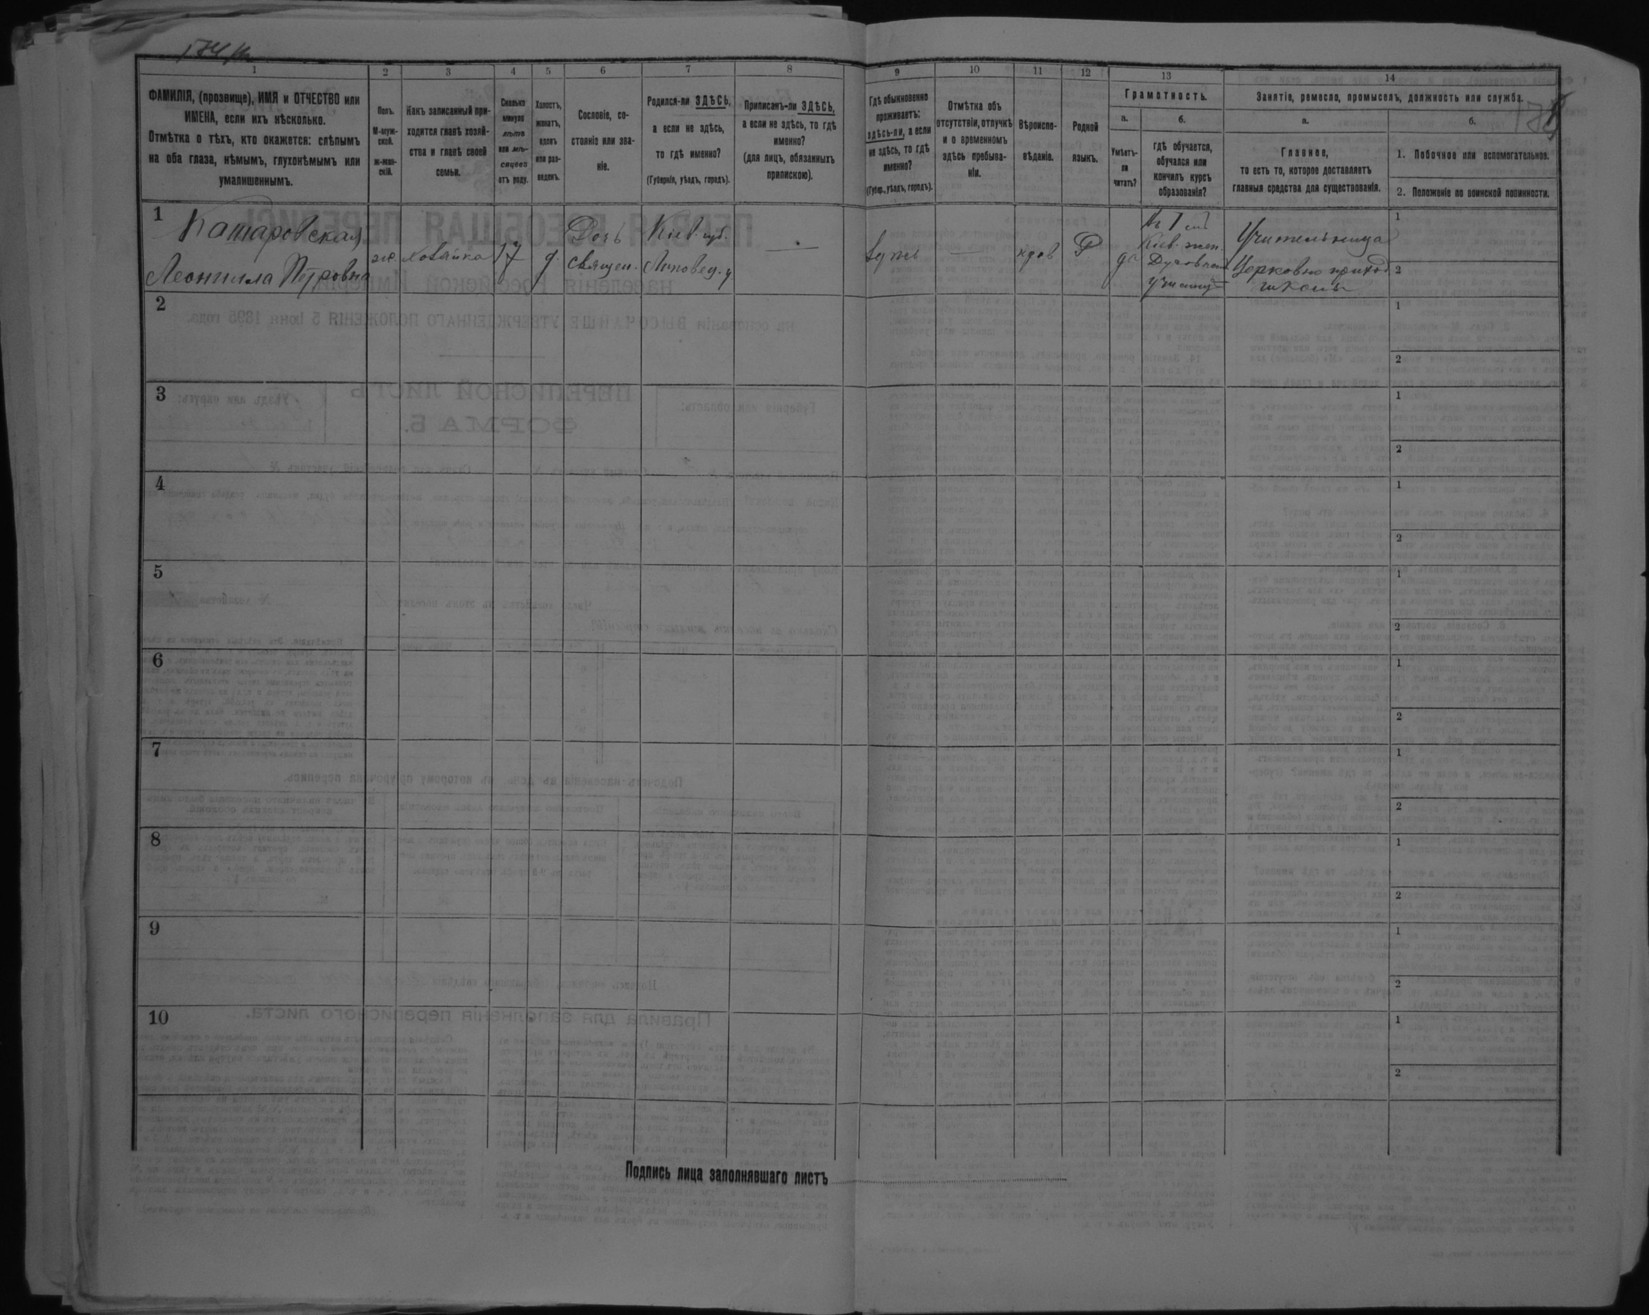 174 
1 2 3 4 5 6 7 8 9 10 11 12 13 14
ФАМИЛІЯ, (прозвище), ИМЯ и ОТЧЕСТВО или
ИМЕНА, если ихъ нѣсколько.
Отмѣтка о тѣхъ, кто окажется: слѣпымъ
на оба глаза, нѣмымъ, глухонѣмымъ или
умалишеннымъ.
Полъ.
М-муж-
ской.
ж-жен-
скій.
Какъ записанный при-
ходится главѣ хозяй-
ства и главѣ своей
семьи.
Сколько
минуло
лѣтъ
или мѣ-
сяцевъ
отъ роду.
Холостъ,
женатъ,
вдовъ
или раз-
веденъ.
Сословіе, со-
стояніе или зва-
ніе.
Родился-ли ЗДѢСЬ,
а если не здѣсь,
то гдѣ именно?
(Губернія, уѣздъ, городъ).
Приписанъ-ли ЗДѢСЬ,
а если не здѣсь, то гдѣ
именно?
(для лицъ, обязанныхъ
припискою).
Гдѣ обыкновенно
проживаетъ:
здѣсь-ли, а если
не здѣсь, то гдѣ
именно?
(Губер., уѣздъ, городъ).
Отмѣтка объ
отсутствіи, отлучкѣ
и о временномъ
здѣсь пребыва-
ніи.
Вѣроиспо-
вѣданіе.
Родной
языкъ.
Грамотность.
а.
Умѣетъ-
ли
читать?
б.
гдѣ обучается,
обучался или
кончилъ курсъ
образованія?
Занятіе, ремесло, промыселъ, должность или служба.
а.
Главное,
то есть то, которое доставляетъ
главныя средства для существованія.
б.
1. Побочное или вспомогательное.
2. Положеніе по воинской повинности.
1
Леонилла Петровна
хозяйка
17
д
Дочь
священ.
Кіев. губ.
Липовец. у
—
—
Р
Кіев. жен.
Духовном
Учительница
Церковно приход
школы
1
2
2
1
2
3
1
2
4
1
2
5
1
2
6
1
2
7
1
2
8
1
2
9
1
2
10
1
2
Подпись лица заполнявшаго листъ